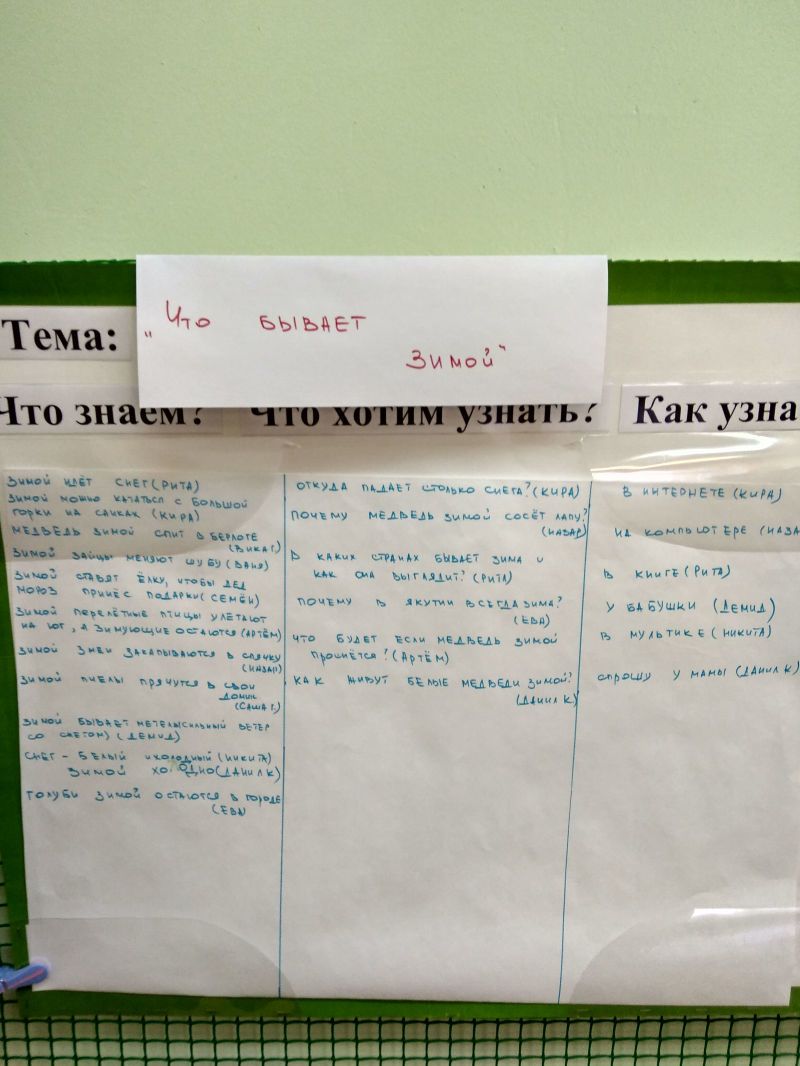 Тема:
„Что бывает
зимой"
Что знаем?
Что хотим узнать?
Как узна
Зимой идёт снег (Рита)
Зимой можно кататься с большой
горки на санках (Кира)
Медведь зимой спит в берлоге
(Вика Г.)
Зимой зайцы меняют шубу (Ваня)
Зимой ставят ёлку, чтобы дед
мороз принёс подарки (Семён)
Зимой перелётные птицы улетают
на юг, а зимующие остаются (Артём)
Зимой змеи закапываются в спячку
(Назар)
Зимой пчелы прячутся в свои
домики
(Саша Г.)
Зимой бывает метель (сильный ветер
со снегом) (Демид)
Снег - белый и холодный (Никита)
Зимой холодно (Данил К)
Голуби зимой остаются в городе
(Ева)
Откуда падает столько снега? (Кира)
Почему медведь зимой сосёт лапу?
(Назар)
В каких странах бывает зима и
как она выглядит? (Рита)
Почему в Якутии всегда зима?
(Ева)
Что будет если медведь зимой
проснётся? (Артём)
Как живут белые медведи зимой?
(Данил К)
В интернете (Кира)
На компьютере (Наза
В книге (Рита)
У бабушки (Демид)
В мультике (Никита)
Спрошу у мамы (Данил К)